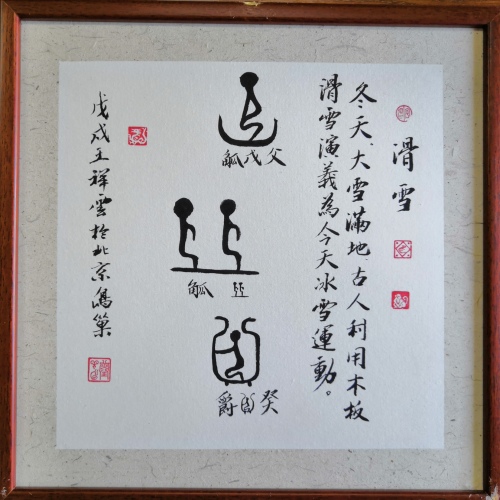 滑雪
冬天、大雪滿地、古人利用木板
滑雪演義為今天冰雪運動。
父戊觚
觚
癸爵
戊戌王祥雲於北京鳥巢